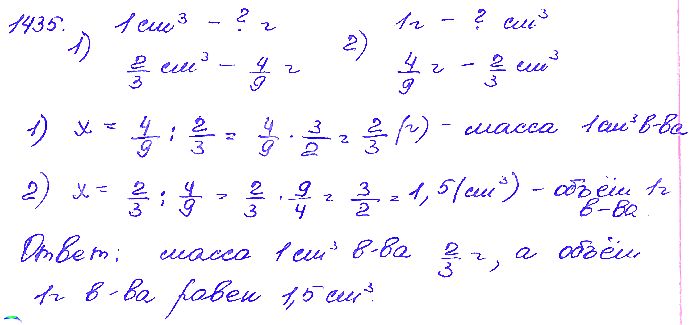 1435. 1) 1 см³ – ? г 2) 1 г – ? см³
2/3 см³ – 4/9 г 4/9 г – 2/3 см³
1) x = 4/9 : 2/3 = 4/9 · 3/2 = 2/3 (г) – масса 1 см³ в-ва
2) x = 2/3 : 4/9 = 2/3 · 9/4 = 3/2 = 1,5 (см³) – объём 1 г
в-ва.
Ответ: масса 1 см³ в-ва 2/3 г, а объём
1 г в-ва равен 1,5 см³.